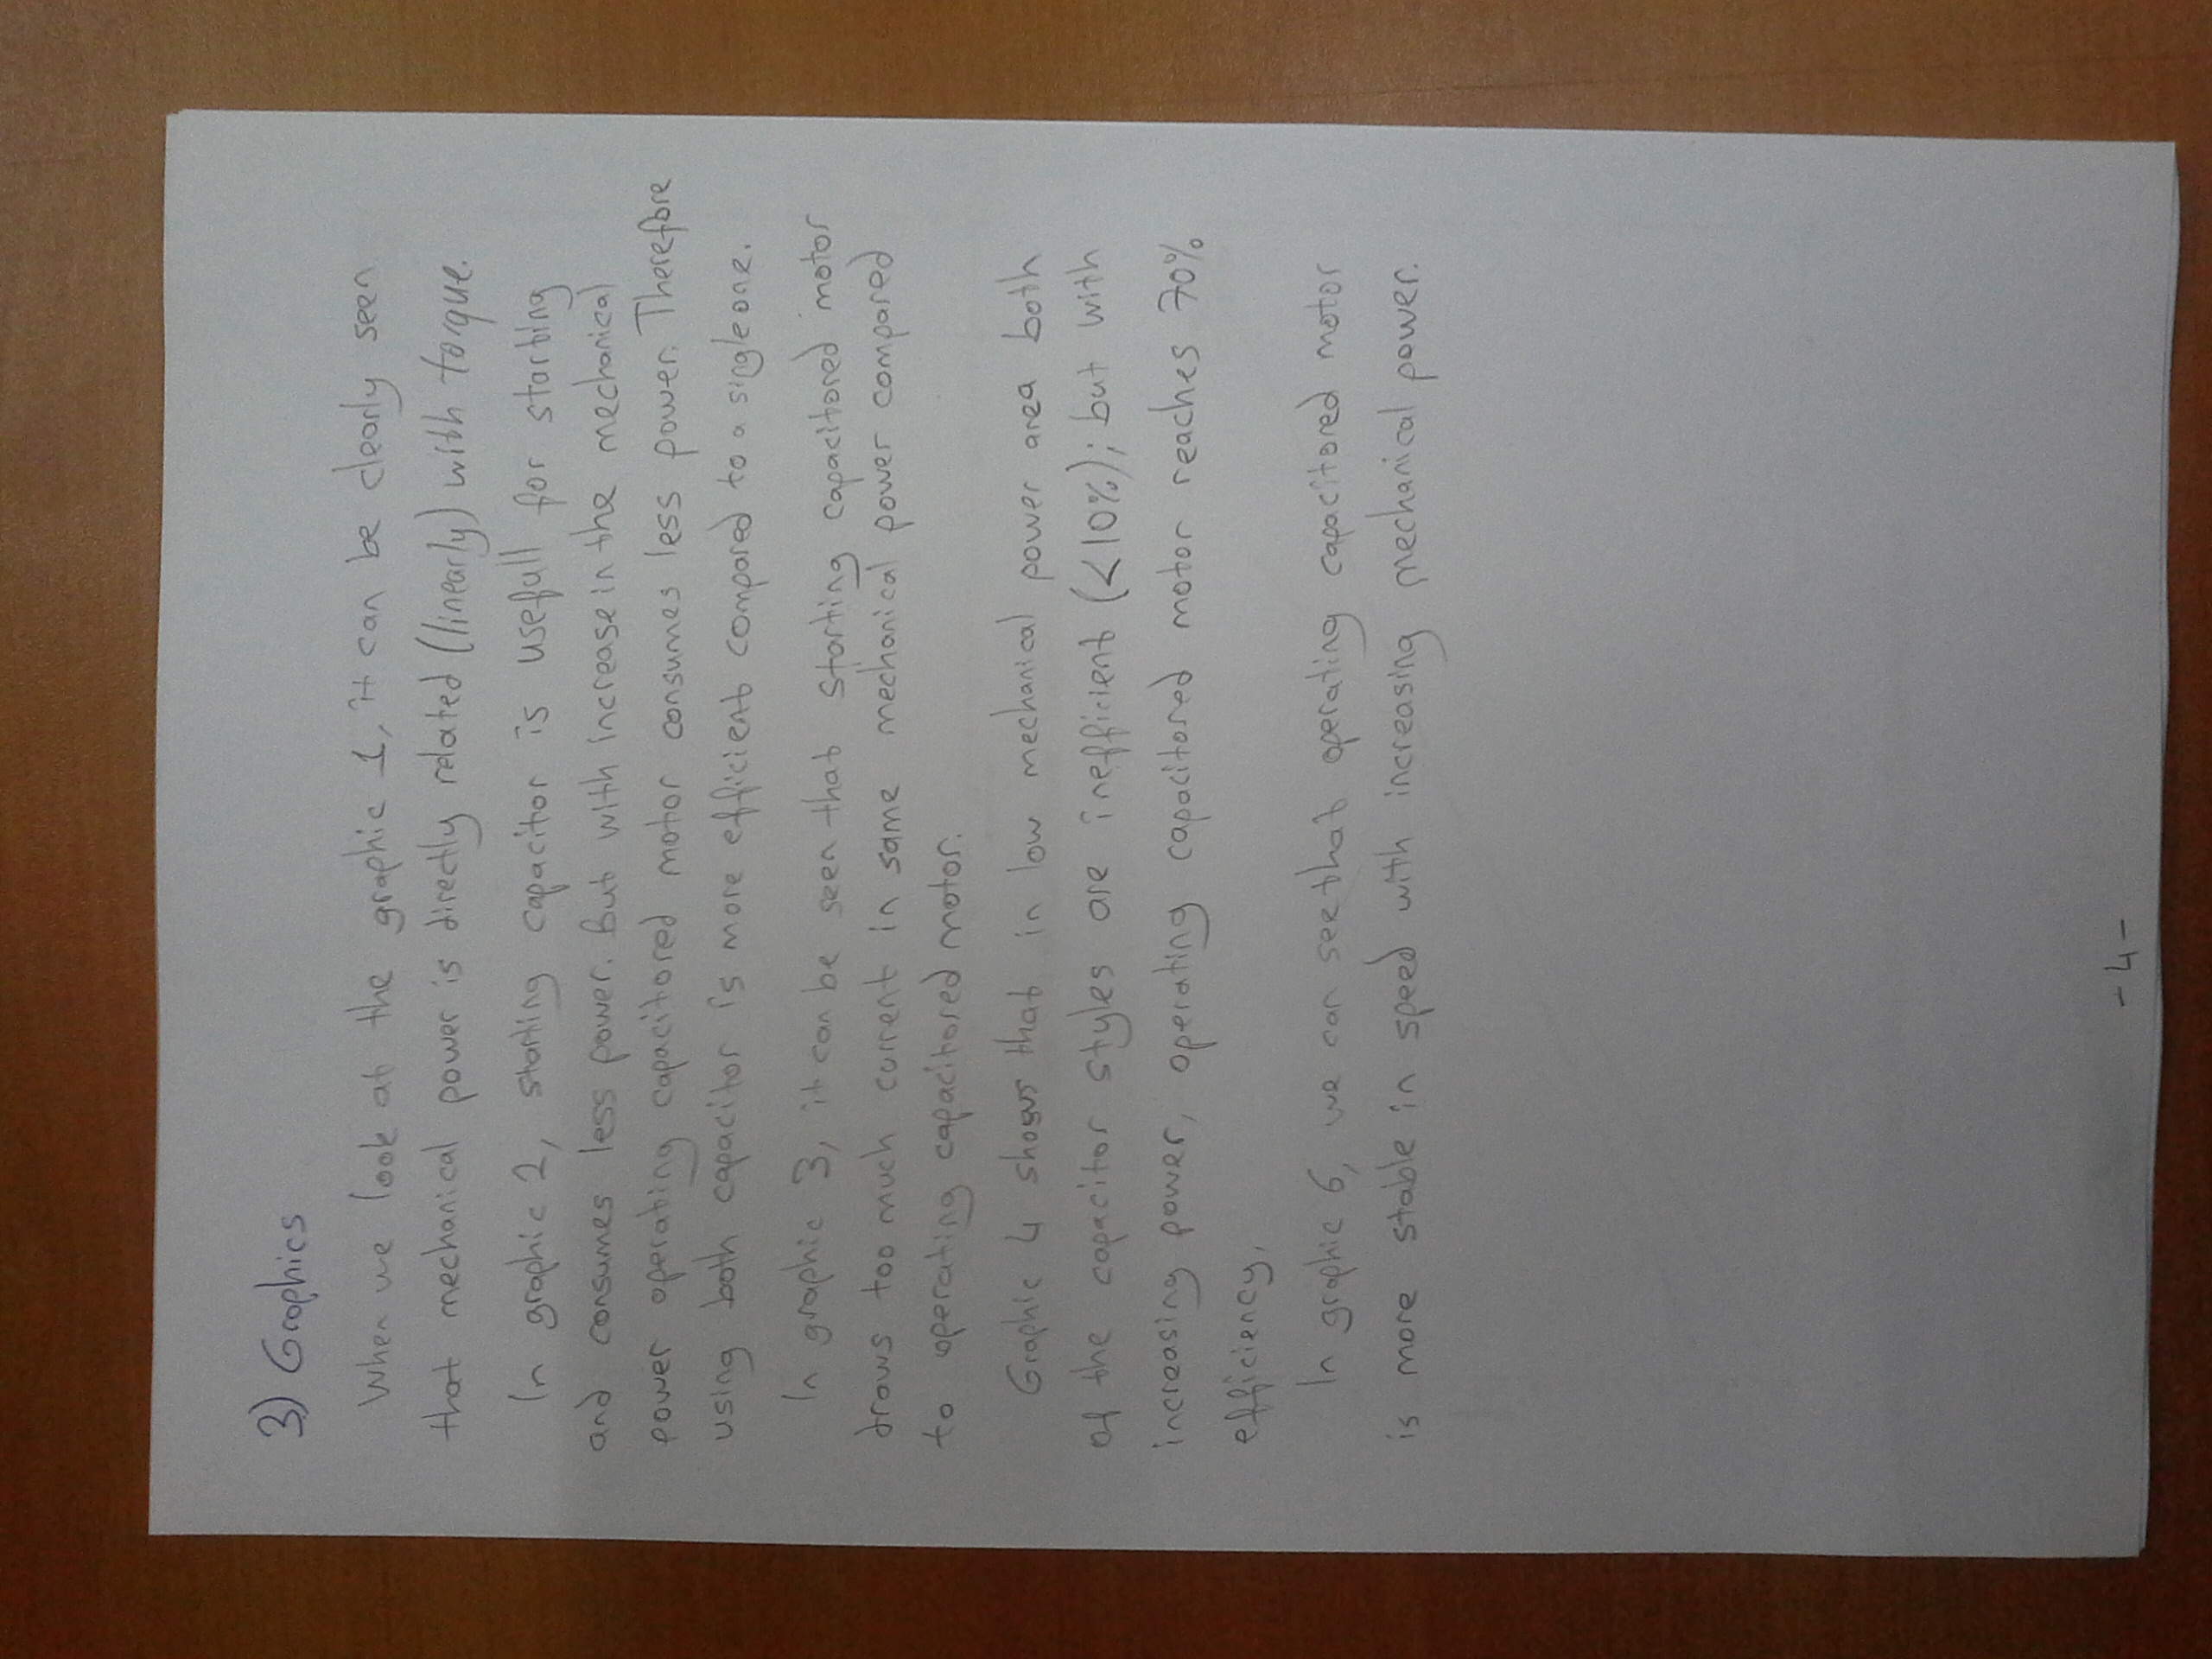 3) Graphics
When we look at the graphic 1, it can be clearly seen
that mechanical power is directly related (linearly) with torque.
In graphic 2, starting capacitor is usefull for starting
and consumes less power. But with increase in the mechanical
power operating capacitored motor consumes less power. Therefore
using both capacitor is more efficient compared to a single one.
In graphic 3, it can be seen that starting capacitored motor
draws too much current in same mechanical power compared
to operating capacitored motor.
Graphic 4 shows that in low mechanical power area both
of the capacitor styles are inefficient (<10%); but with
increasing power, operating capacitored motor reaches 70%
efficiency.
In graphic 6, we can see that operating capacitored motor
is more stable in speed with increasing mechanical power.
-4-